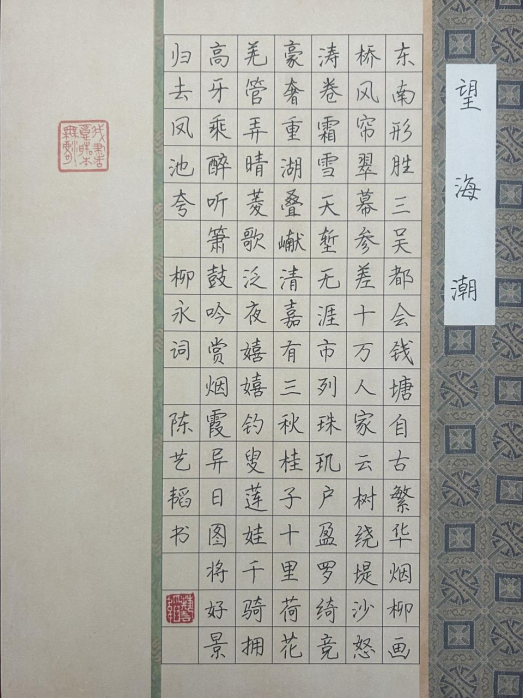 望海潮
东南形胜三吴都会钱塘自古繁华烟柳画
桥风帘翠幕参差十万人家云树绕堤沙怒
涛卷霜雪天堑无涯市列珠玑户盈罗绮竞
豪奢重湖叠𪩘清嘉有三秋桂子十里荷花
羌管弄晴菱歌泛夜嬉嬉钓叟莲娃千骑拥
高牙乘醉听箫鼓吟赏烟霞异日图将好景
归去凤池夸 柳永词 陈艺韬书